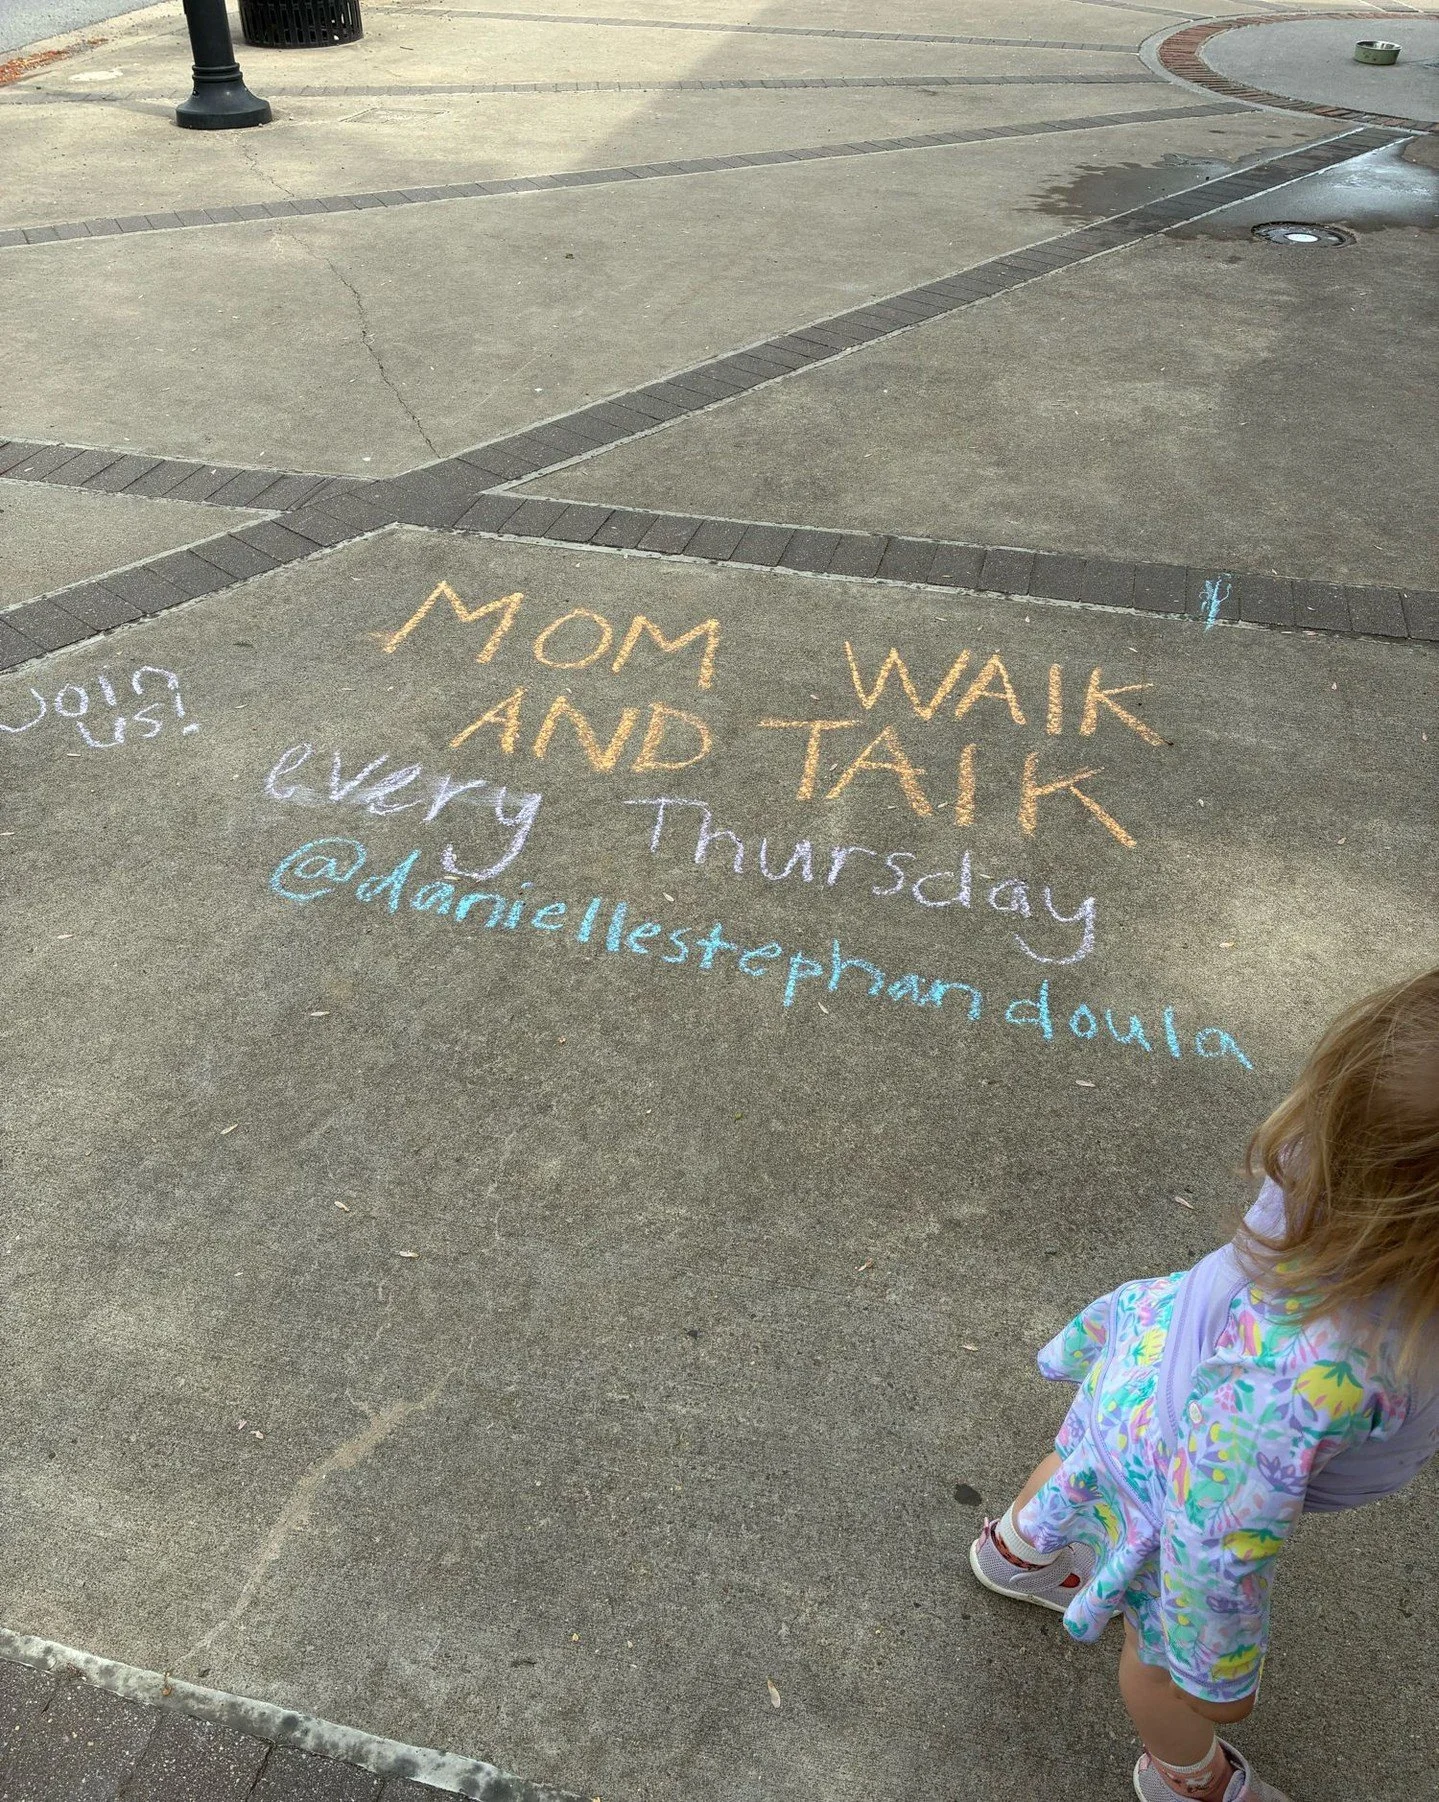 MOM WALK
AND TALK
Join
us!
every Thursday
@daniellestephandoula